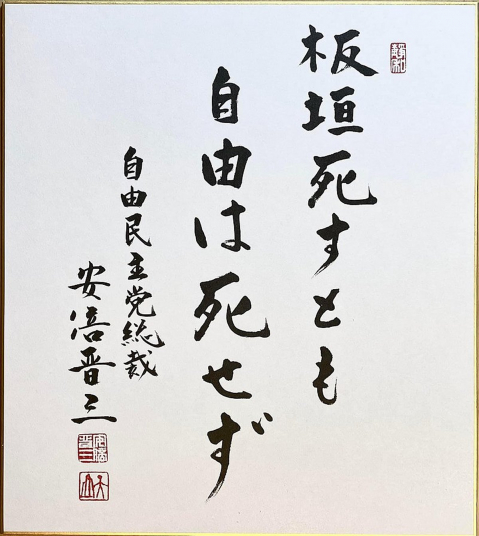 板垣死すとも
自由は死せず
自由民主党総裁
安倍晋三
安倍
晋三